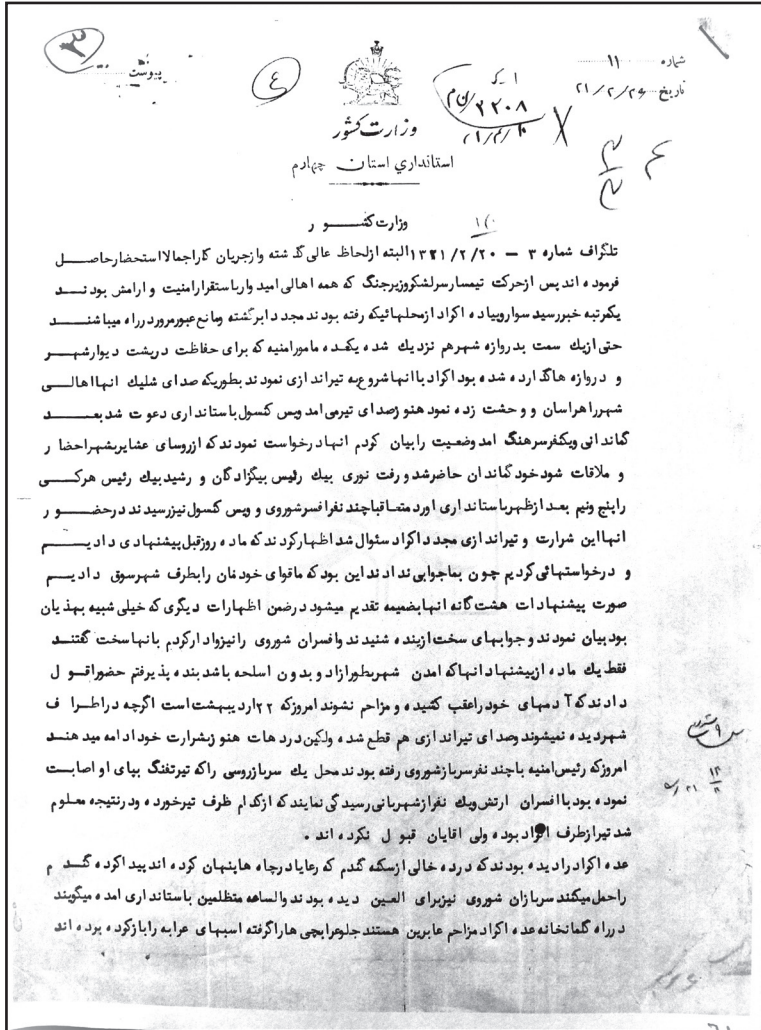 ۳
پیوست
۴
شماره ۱۱
تاریخ ۲۱/۲/۲۶
۲۲۰۸
وزارت کشور
استانداری استان چهارم
وزارت کشور
تلگراف شماره ۳ – ۱۳۲۱/۲/۲۰ البته ازلحاظ عالی گذشته وازجریان کاراجمالا استحضارحاصل
فرموده اند پس ازحرکت تیمسارسرلشکروزیرجنگ که همه اهالی امید وارباستقرارامنیت و ارامش بودند
یکمرتبه خبررسید سواروپیاده اکراد ازمحلهائیکه رفته بودند مجددا برگشته ومانع عبورمروردرراه میباشند
حتی ازیك سمت بدروازه شهرهم نزدیك شده یکعده مامورامنیه که برای حفاظت درپشت دیوارشهر
و دروازه هاگذارده شده بود اکراد باانها شروع به تیراندازی نمودند بطوریکه صدای شلیك انها اهالی
شهرراهراسان و وحشت زده نمود هنوزصدای تیرمی امد ویس کنسول باستانداری دعوت شد بعد
گماندانی ویکنفرسرهنگ امد وضعیت رابیان کردم انها درخواست نمودند که ازروسای عشایربشهراحضار
و ملاقات شود خود گماندان حاضرشد و رفت نوری بیك رئیس بیگزادگان و رشید بیك رئیس هرکی
راپنج ونیم بعد ازظهرباستانداری اورد متعاقبا چند نفرافسرشوروی و ویس کنسول نیزرسیدند درحضور
انها این شرارت و تیراندازی مجدد اکراد سئوال شد اظهارکردند که ماده روزقبل پیشنهادی دادیم
و درخواستهائی کردیم چون بماجوابی ندادند این بود که ماقوای خودمان رابطرف شهرسوق دادیم
صورت پیشنهادات هشت گانه انها بضمیمه تقدیم میشود درضمن اظهارات دیگری که خیلی شبیه بهذیان
بود بیان نمودند وجوابهای سخت ازبنده شنیدند وافسران شوروی رانیزوادارکردم بانها سخت گفتند
فقط یك ماده ازپیشنهاد انها که امدن شهربطورازاد و بدون اسلحه باشد بنده پذیرفتم حضورا قول
دادند که آدمهای خود راعقب کشیده و مزاحم نشوند امروزکه ۲۲ اردیبهشت است اگرچه دراطراف
شهردیده نمیشوند وصدای تیراندازی هم قطع شده ولیکن دردهات هنوزبشرارت خود ادامه میدهند
امروزکه رئیس امنیه باچند نفرسربازشوروی رفته بودند محل یك سربازروسی راکه تیرتفنگ بپای او اصابت
نموده بود باافسران ارتش ویك نفرازشهربانی رسیدگی نمایند که ازکدام طرف تیرخورده ودرنتیجه معلوم
شد تیرازطرف اکراد بوده ولی اقایان قبول نکرده اند .
عده اکراد رادیده بودند که درده خالی ازسکنه گندم که رعایا درچاه هاپنهان کرده اند پیدا کرده گندم
راحمل میکنند سربازان شوروی نیزبرای العین دیده بودند والساعه متظلمین باستانداری امده میگویند
درراه گلمانخانه عده اکراد مزاحم عابرین هستند جلوعرابچی هاراگرفته اسبهای عرابه رابازکرده برده اند